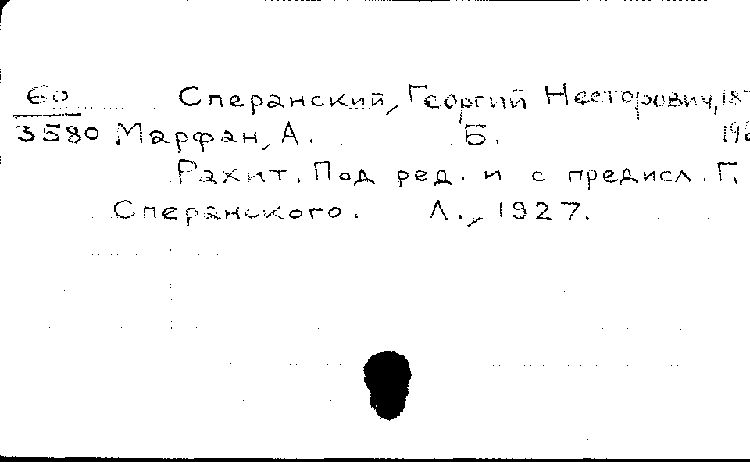 60 Сперанский, Георгий Несторович, 187
3580 Марфан, А. Б. 196
Рахит. Под ред. и с предисл. Г.
Сперанского. Л., 1927.